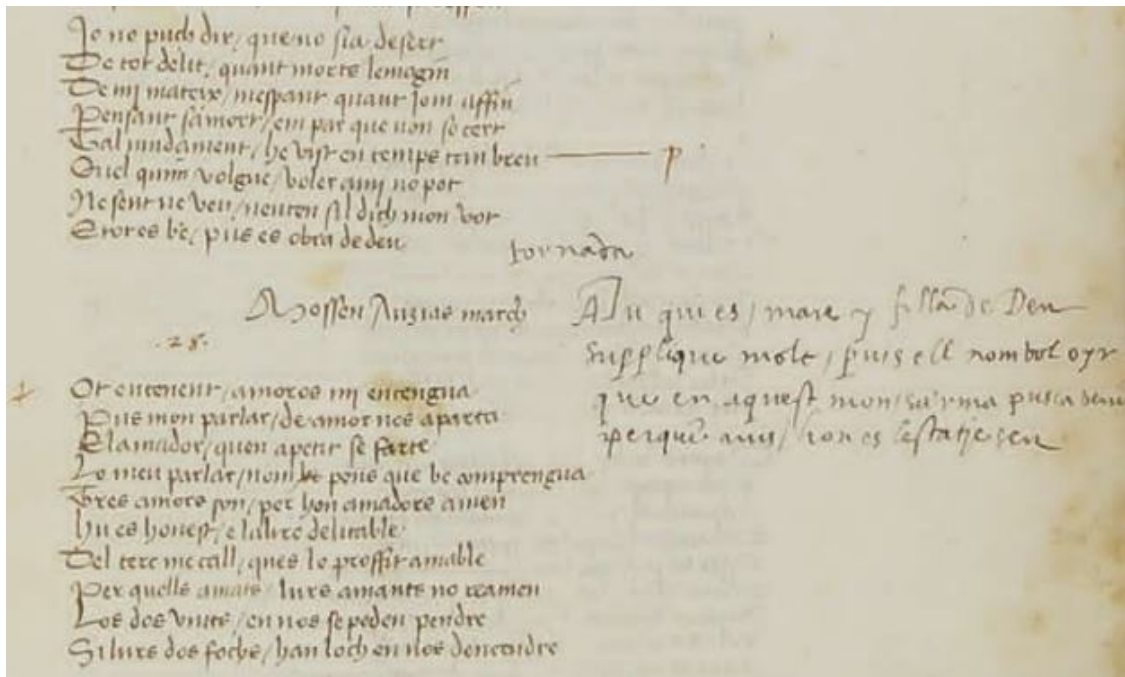 Io no puch dir / que no sia desert
De tot delit / quant morta lemagin
De mi mateix / mespant quant iom affin
Pensant sa mort / em par que non so cert
Tal mudament / he vist en temps tan breu p
Quel quim volgue / voler ami no pot
Ne sent ne veu / nenten sil dich mon vot
E tot es be / puis es obra de deu
tornada
Mossen Auzias march
A Tu qui es / mare y filla de Deu
supplique molt / puis ell nom vol oyr
que en aquest mon / sa rma pusca
perque mis / hon es lestatje seu
.28.
Ot entenent / amoros mi entengua
Pus mon parlar / de amor nos aparta
El amador / quen apetit se farta
Lo meu parlar / nom pens que be comprengua
Tres amors son / per hon amadors amen
hu es honest / e laltre delitable
Del terç me call / ques lo proffit amable
Per quells amats / lurs amants no reamen
Los dos units / en nos se poden pendre
Si lurs dos fochs / han loch en nos